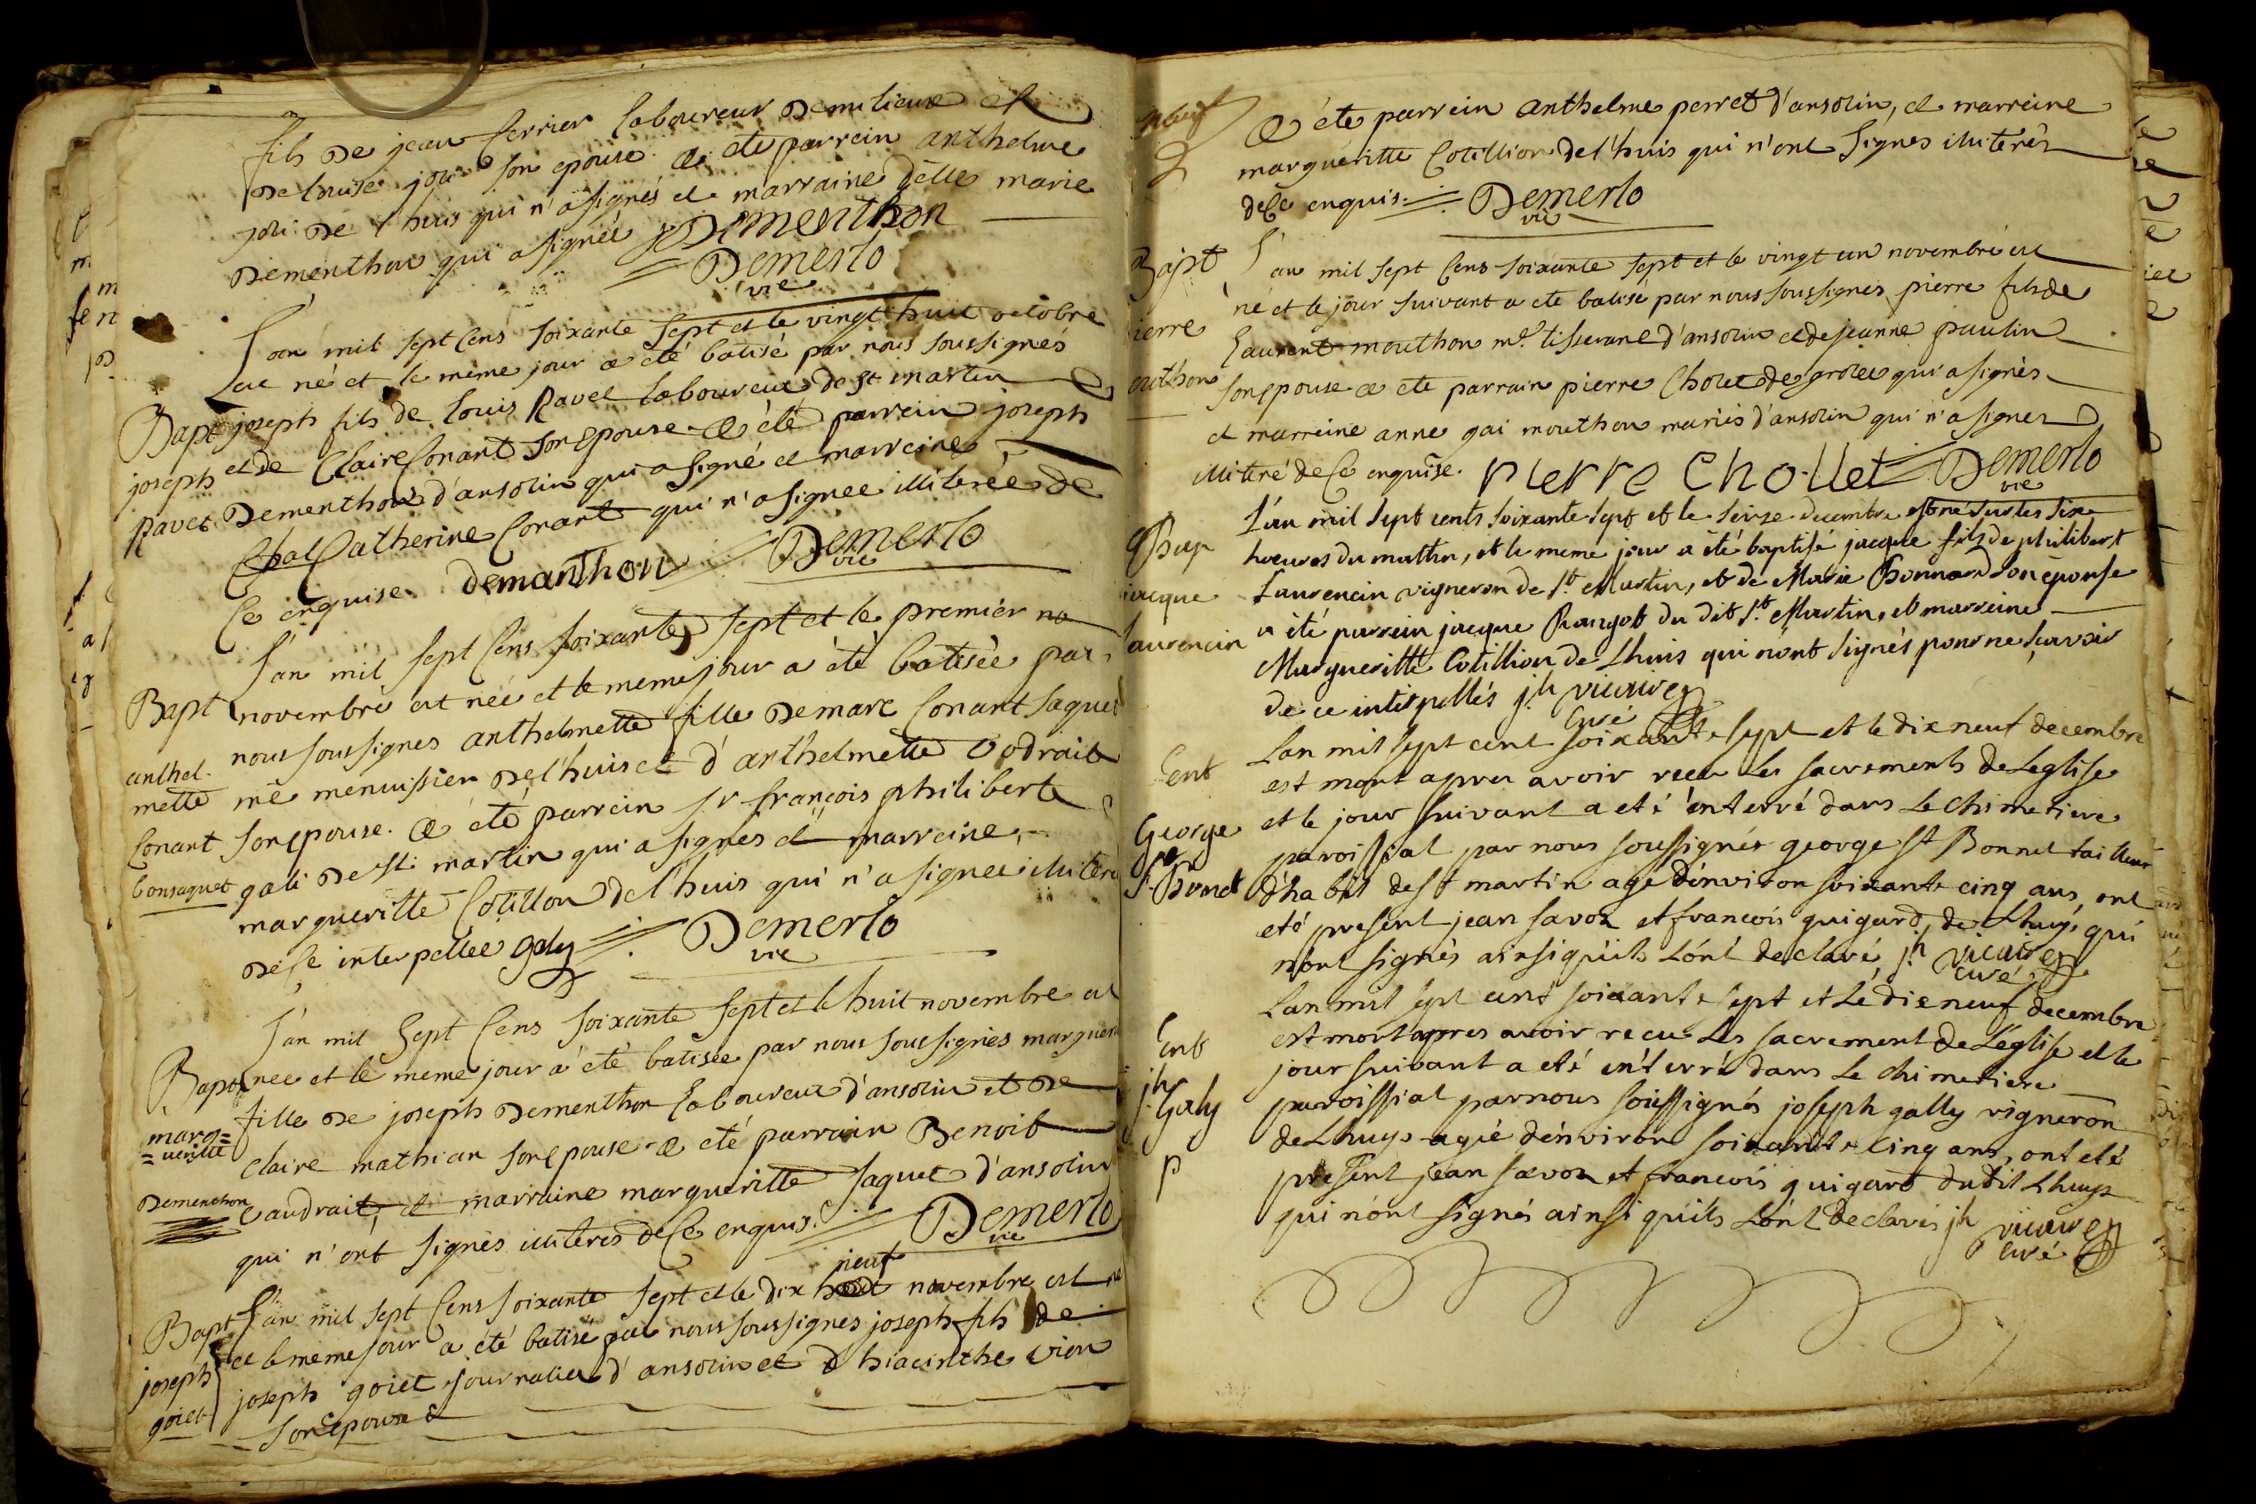 fils de jean Cerrier laboureur de milieux et
de louise joli son epouse. a ete parrein anthelme
joli de l'huis qui n'a signés et marraine delle marie
Dementhon qui a signée Dementhon
Demerlo
vie
L'an mil sept Cens soixante sept et le vingt huit octobre
est né et le même jour a été batisé par nous soussignés
Bapt joseph fils de louis Ravet laboureur de st martin
joseph et de Claire Conant son epouse a été parrein joseph
Ravet Dementhon d'ansolin qui a signé et marreine
Catherine Conant qui n'a signee illiterée de
Ce enquise. demanthon Demerlo
vie
L'an mil sept Cens soixante sept et le premier no
Bapt novembre est née et le meme jour a été batisée par
nous soussignes anthelmette fille de marc Conant saquet
anthel- 
mette me menuisier de l'huis et d'anthelmette Vodrait
Conant son epouse. a été parrein sr françois philibert
Consaquet gali de st martin qui a signés et marreine
margueritte Cotillon de l'huis qui n'a signee illitere
de se interpellee galy Demerlo
vie
L'an mil sept Cens soixante sept et le huit novembre est
Bapt nee et le meme jour a été batisée par nous soussignés marguerit
marg=
=ueritte
fille de joseph Dementhon laboureur d'ansolin et de
Claire mathian son epouse a eté parrain Benoit
Dementhon
vaudrait, et marraine margueritte saquet d'ansolin
qui n'ont signés illiteres de Ce enquis. Demerlo
vie
neuf
Bapt L'an mil sept Cens soixante sept et le dix novembre est né
joseph et le meme jour a été batisé par nous soussignes joseph fils de
goiet joseph goiet journalier d'ansolin et d hiacinthe vion
son Epouse &
neuf
a été parrein anthelme perret d'ansolin, et marreine
margueritte Cotillion de l'huis qui n'ont signés illiterés
de Ce enquis. Demerlo
vie
Bapt L'an mil sept Cens soixante sept et le vingt un novembre est
né et le jour suivant a ete batisé par nous soussignes pierre fils de
ierre Laurent mouthon me. tisserand d'ansolin et de jeanne paulin
outhon son epouse a ete parrain pierre Cholet de grolee qui a signés
et marreine anne gai mouthon mariés d'ansolin qui n'a signes
illitiré de Ce enquise. Pierre Chollet Demerlo
vie
L'an mil sept cents soixante sept et le seize decembre est né sur les six
Bap heures du mattin, et le meme jour a été baptisé jacque fils de philibert
jacque Laurencin vigneron de st Martin, et de Marie Bonnard son epouse
Laurencin a été parrein jacque Rangot du dit st Martin, et marreine
Margueritte Cotillion de Lhuis qui n'ont signés pour ne sçavoir
de ce interpellés jh vicaire
Curé
Lan mil sept cent soixante sept et le dix neuf decembre
Ent est mort apres avoir receu les sacrements de Leglise
George et le jour suivant a eté enterré dans le chimetiere
paroissial par nous soussignés george st Bonnet tailleur
st Bonet d'habit de st martin agé d'environ soixante cinq ans, ont
eté present jean savoz et françois guigard, de Lhuys qui
n'ont signés ainsi qu'ils l'ont declaré jh vicaire
curé
Lan mil sept cent soixante sept et Le dix neuf decembre
Ent est mort apres avoir receu Les sacrement de Leglise et le
jh jour suivant a eté enterré dans le chimetiere
Galy paroissial par nous soussignés joseph gally vigneron
de Lhuys agé d'environ soixante cinq ans, ont eté
p present jean savoz et françois guigard dudit Lhuys
qui n'ont signés ainsi qu'ils l'ont declarés jh vicaire
curé